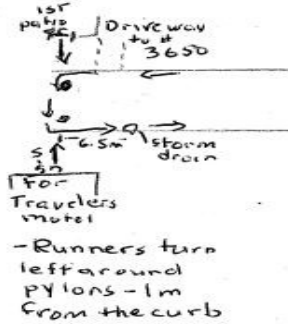 1st
patio
Driveway
to #
3650
6.5m
storm
drain
sign
for
Travelers
motel
-Runners turn
left around
pylons-1m
from the curb